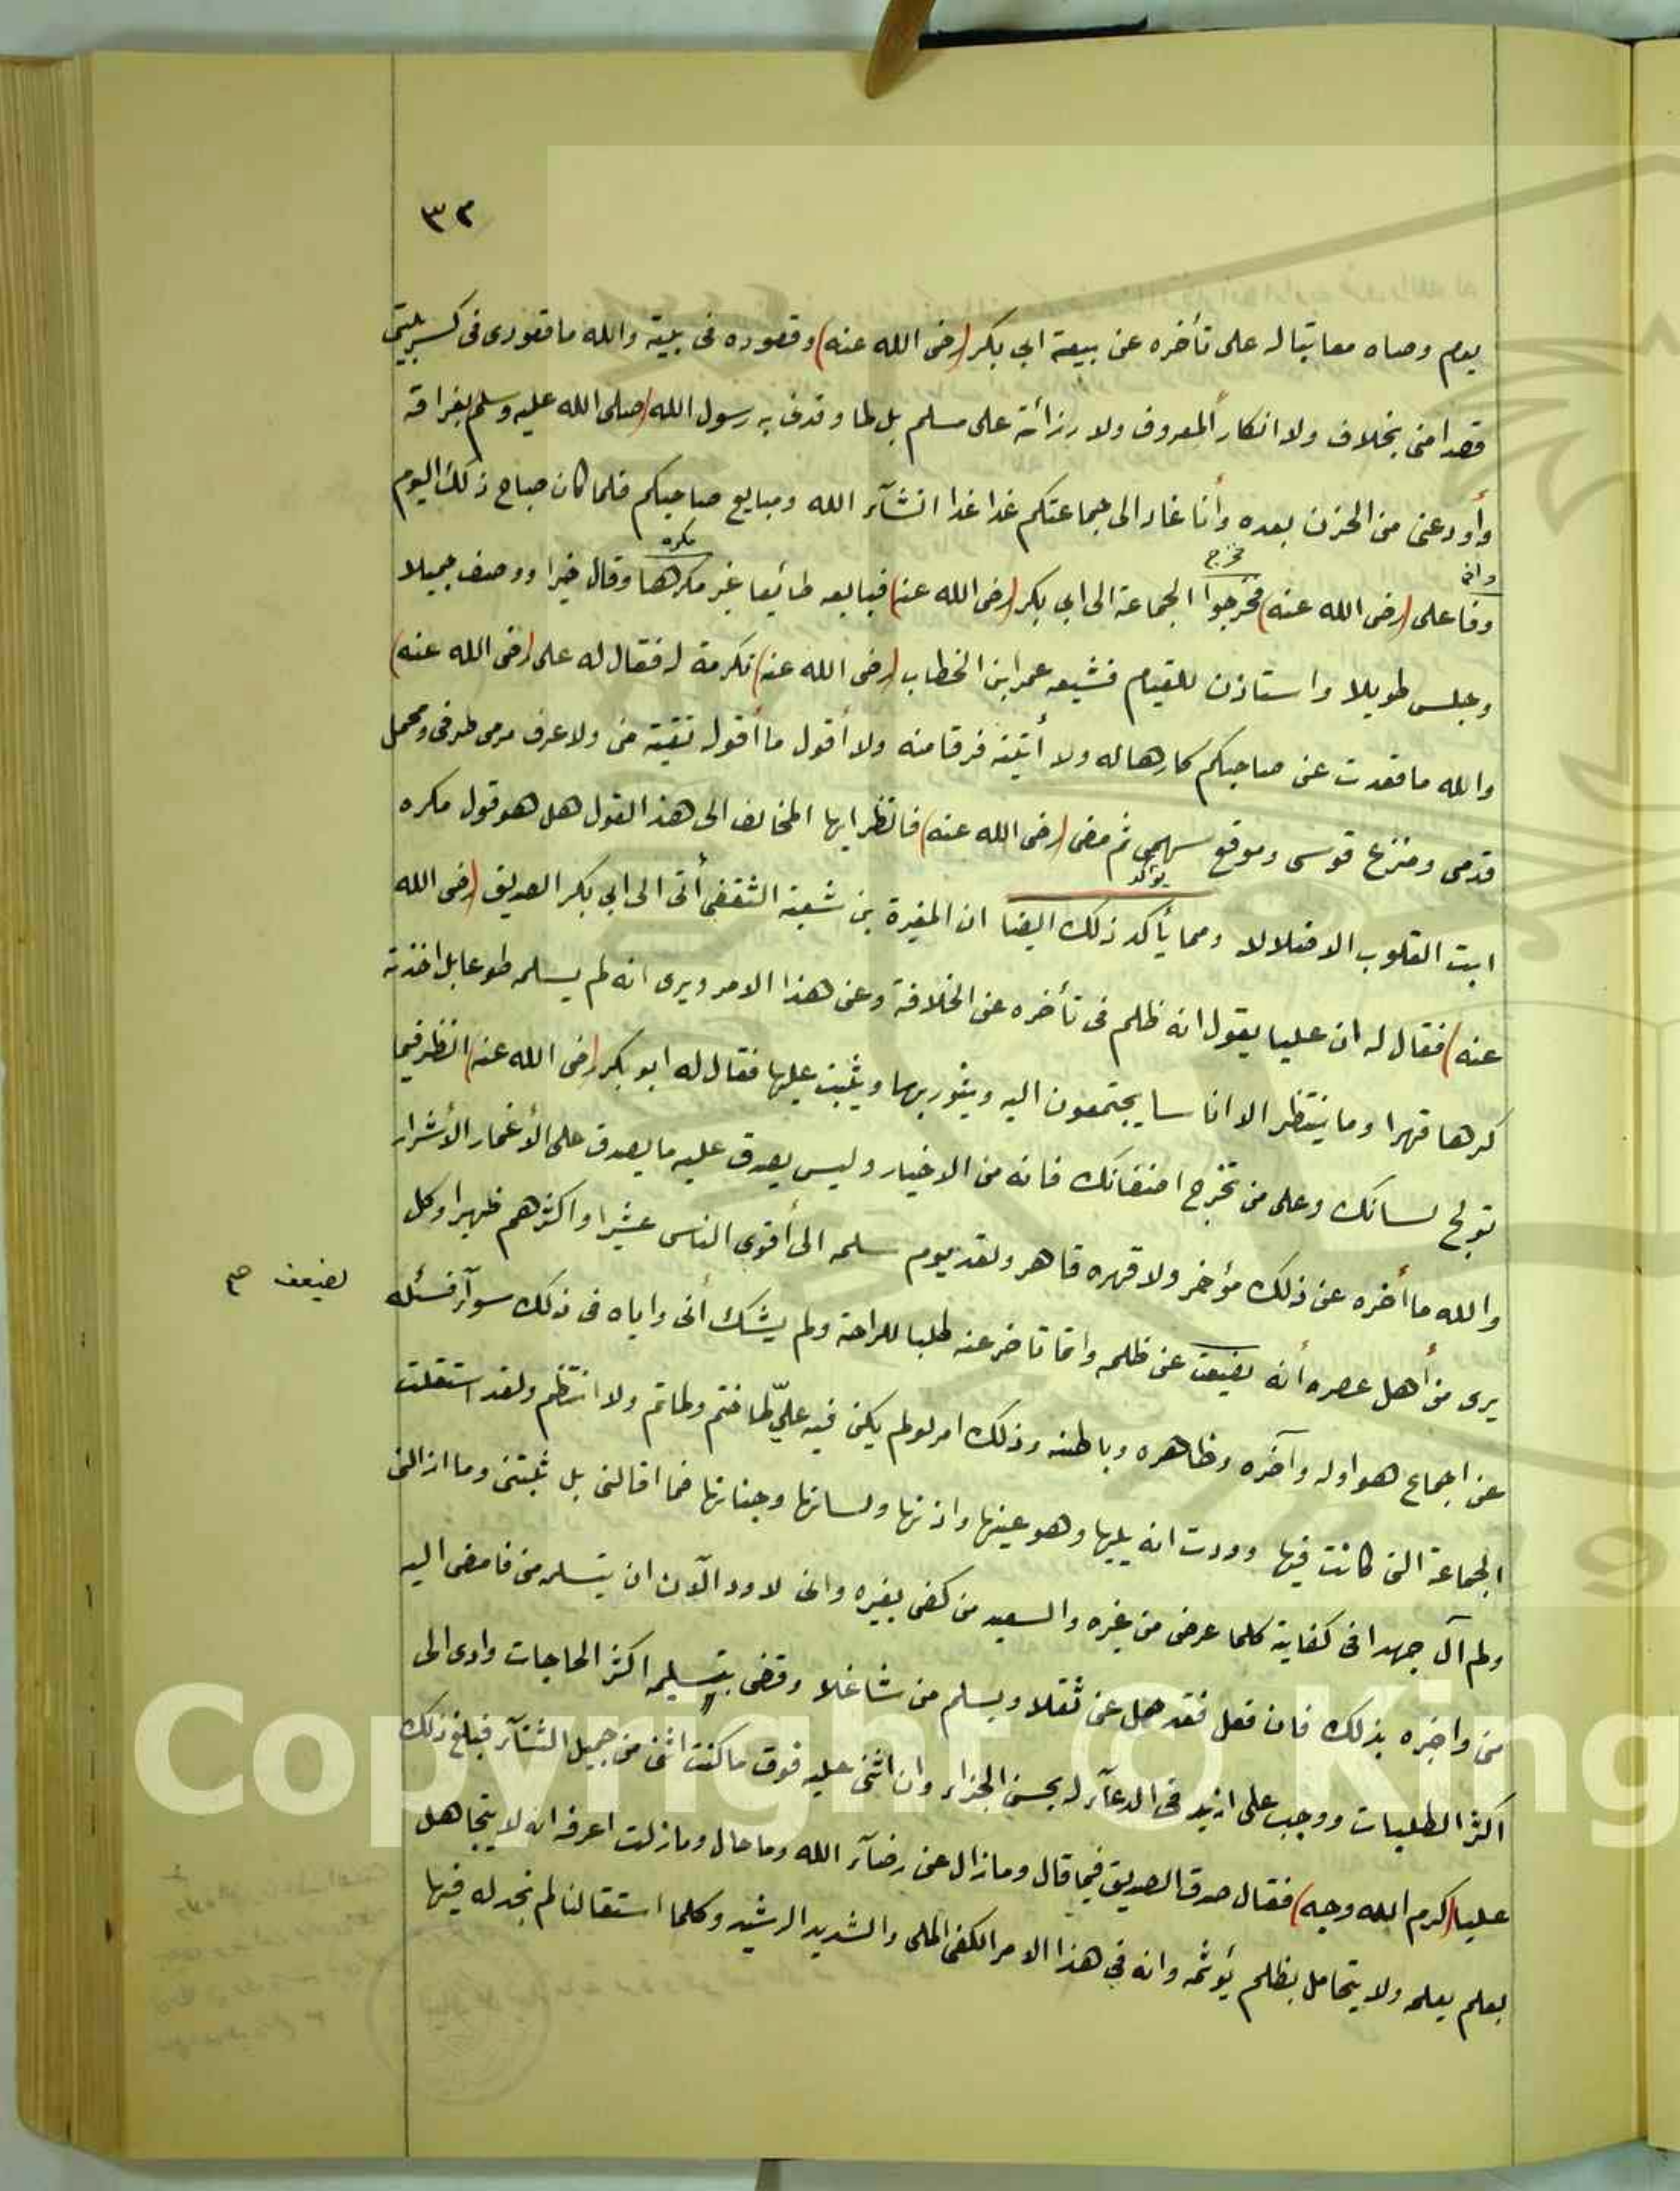 ٣٢
يوم وصاه معاتبا له على تأخره عن بيعة ابي بكر (رضى الله عنه) وقعوده فى بيته والله ما قعودى فى كسر بيتى
قصدا منى بخلاف ولا انكار ألمعروف ولا رزأة على مسلم بل لما وقذف به رسول الله (صلى الله عليه وسلم بفراقه
وأودعنى من الحزن بعده وأنا غاد الى جماعتكم غدا غدا انشآء الله ومبايع صاحبكم فلما كان صباح ذلك اليوم
وافى
فخرج
مكره
وفا على (رضى الله عنه) فخرجوا الجماعة الى ابي بكر (رضى الله عنه) فبايعه طائعا غير مكرهها وقال خيرا ووصف جميلا
وجلس طويلا واستاذن للقيام فشيعه عمر ابن الخطاب (رضى الله عنه) تكرمة له فقال له على (رضى الله عنه)
والله ما قعدت عن صاحبكم كارها له ولا أتيته فرقا منه ولا أقول ما أقول تقية منى ولا عرف مرمى طرفى ومحمل
قدمى ومنزع قوسى وموقع سهمى ثم مضى (رضى الله عنه) فانظر ايها المخالف الى هذا القول هل هو قول مكره
يؤكد
ابت القلوب الا ضلالا ومما يأكد ذلك ايضا ان المغيرة بن شعبة الثقفى أتى الى ابي بكر الصديق (رضى الله
عنه) فقال له ان عليا يقول انه ظلم فى تأخره عن الخلافة وعن هذا الامر ويرى انه لم يسلمه طوعا بل اخذته
كرها قهرا وما ينتظر الا اناسا يجتمعون اليه ويثور بها ويثبت عليها فقال له ابو بكر (رضى الله عنه) انظر فيما
تولج لسانك وعلى من تخرج اضغانك فانه من الاخيار وليس يصدق عليه ما يصدق على الأغمار الأشرار
والله ما أخره عن ذلك مؤخر ولا قهره قاهر ولقد يوم سلمه الى أقوى الناس عشيرا واكثرهم ظهيرا وكل
لضيعف صح
يرى من أهل عصره أنه يضيعف عن ظلمه وانما تاخر عنه طلبا للراحة ولم يشك أنى واياه فى ذلك سوآء فسئله
عن اجماع هو اوله وآخره وظاهره وباطنه وذلك امر لو لم يكن فيه علىّ لما ختم ولما تم ولا انتظم ولقد استقلت
الجماعة التى كانت فيها ووددت انه يليها وهو عينها واذنها ولسانها وجنانها فما اقالنى بل ثبتنى وما ازالنى
ولم آل جهدا فى كفاية كلما عرض من غيره والسعيد من كفى بغيره وانى لاود الآن ان يتسلمه منى فامضى اليه
منى واخبره بذلك فان فعل فقد حمل عنى ثقلا ويسلم منى شاغلا وقضى بتسليمه اكثر الحاجات وادى الى
اكثر الطلبات ووجب على ازيد فى الدعآء له بحسن الجزاء وان اثنى عليه فوق ما كنت اثنى من جميل الثنآء فبلغ ذلك
عليا (كرم الله وجهه) فقال صدق الصديق فيما قال وما زال عن رضآء الله وما حال وما زلت اعرفه انه لا يتجاهل
بعلم يعلمه ولا يتحامل بظلم يؤثمه وانه فى هذا الامر الكفى الملى والشديد الرشيد وكلما استقالنا لم نجد له فيها
Copyright © King